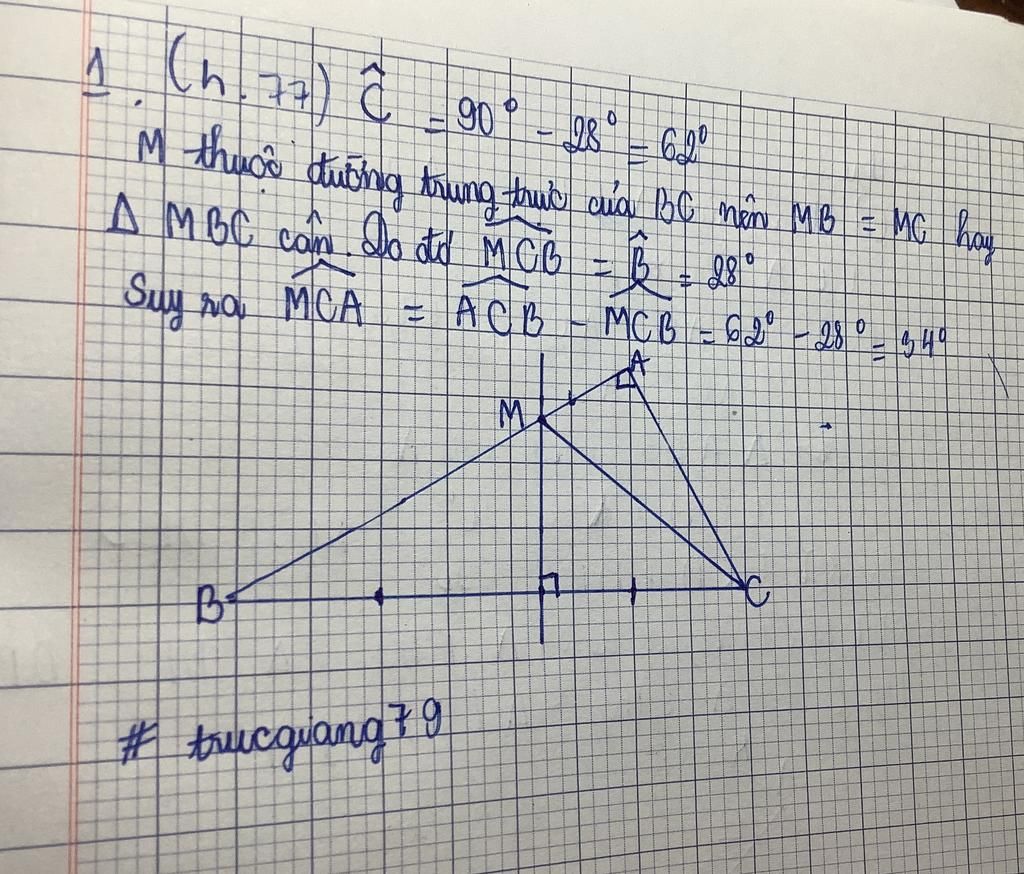 1. (h.77) Ĉ = 90° - 28° = 62°
M thuộc đường trung trực của BC nên MB = MC hay
Δ MBC cân. Do đó MCB̂ = B̂ = 28°
Suy ra MCÂ = ACB̂ - MCB̂ = 62° - 28° = 34°
A
M
B
C
# trucgiang79